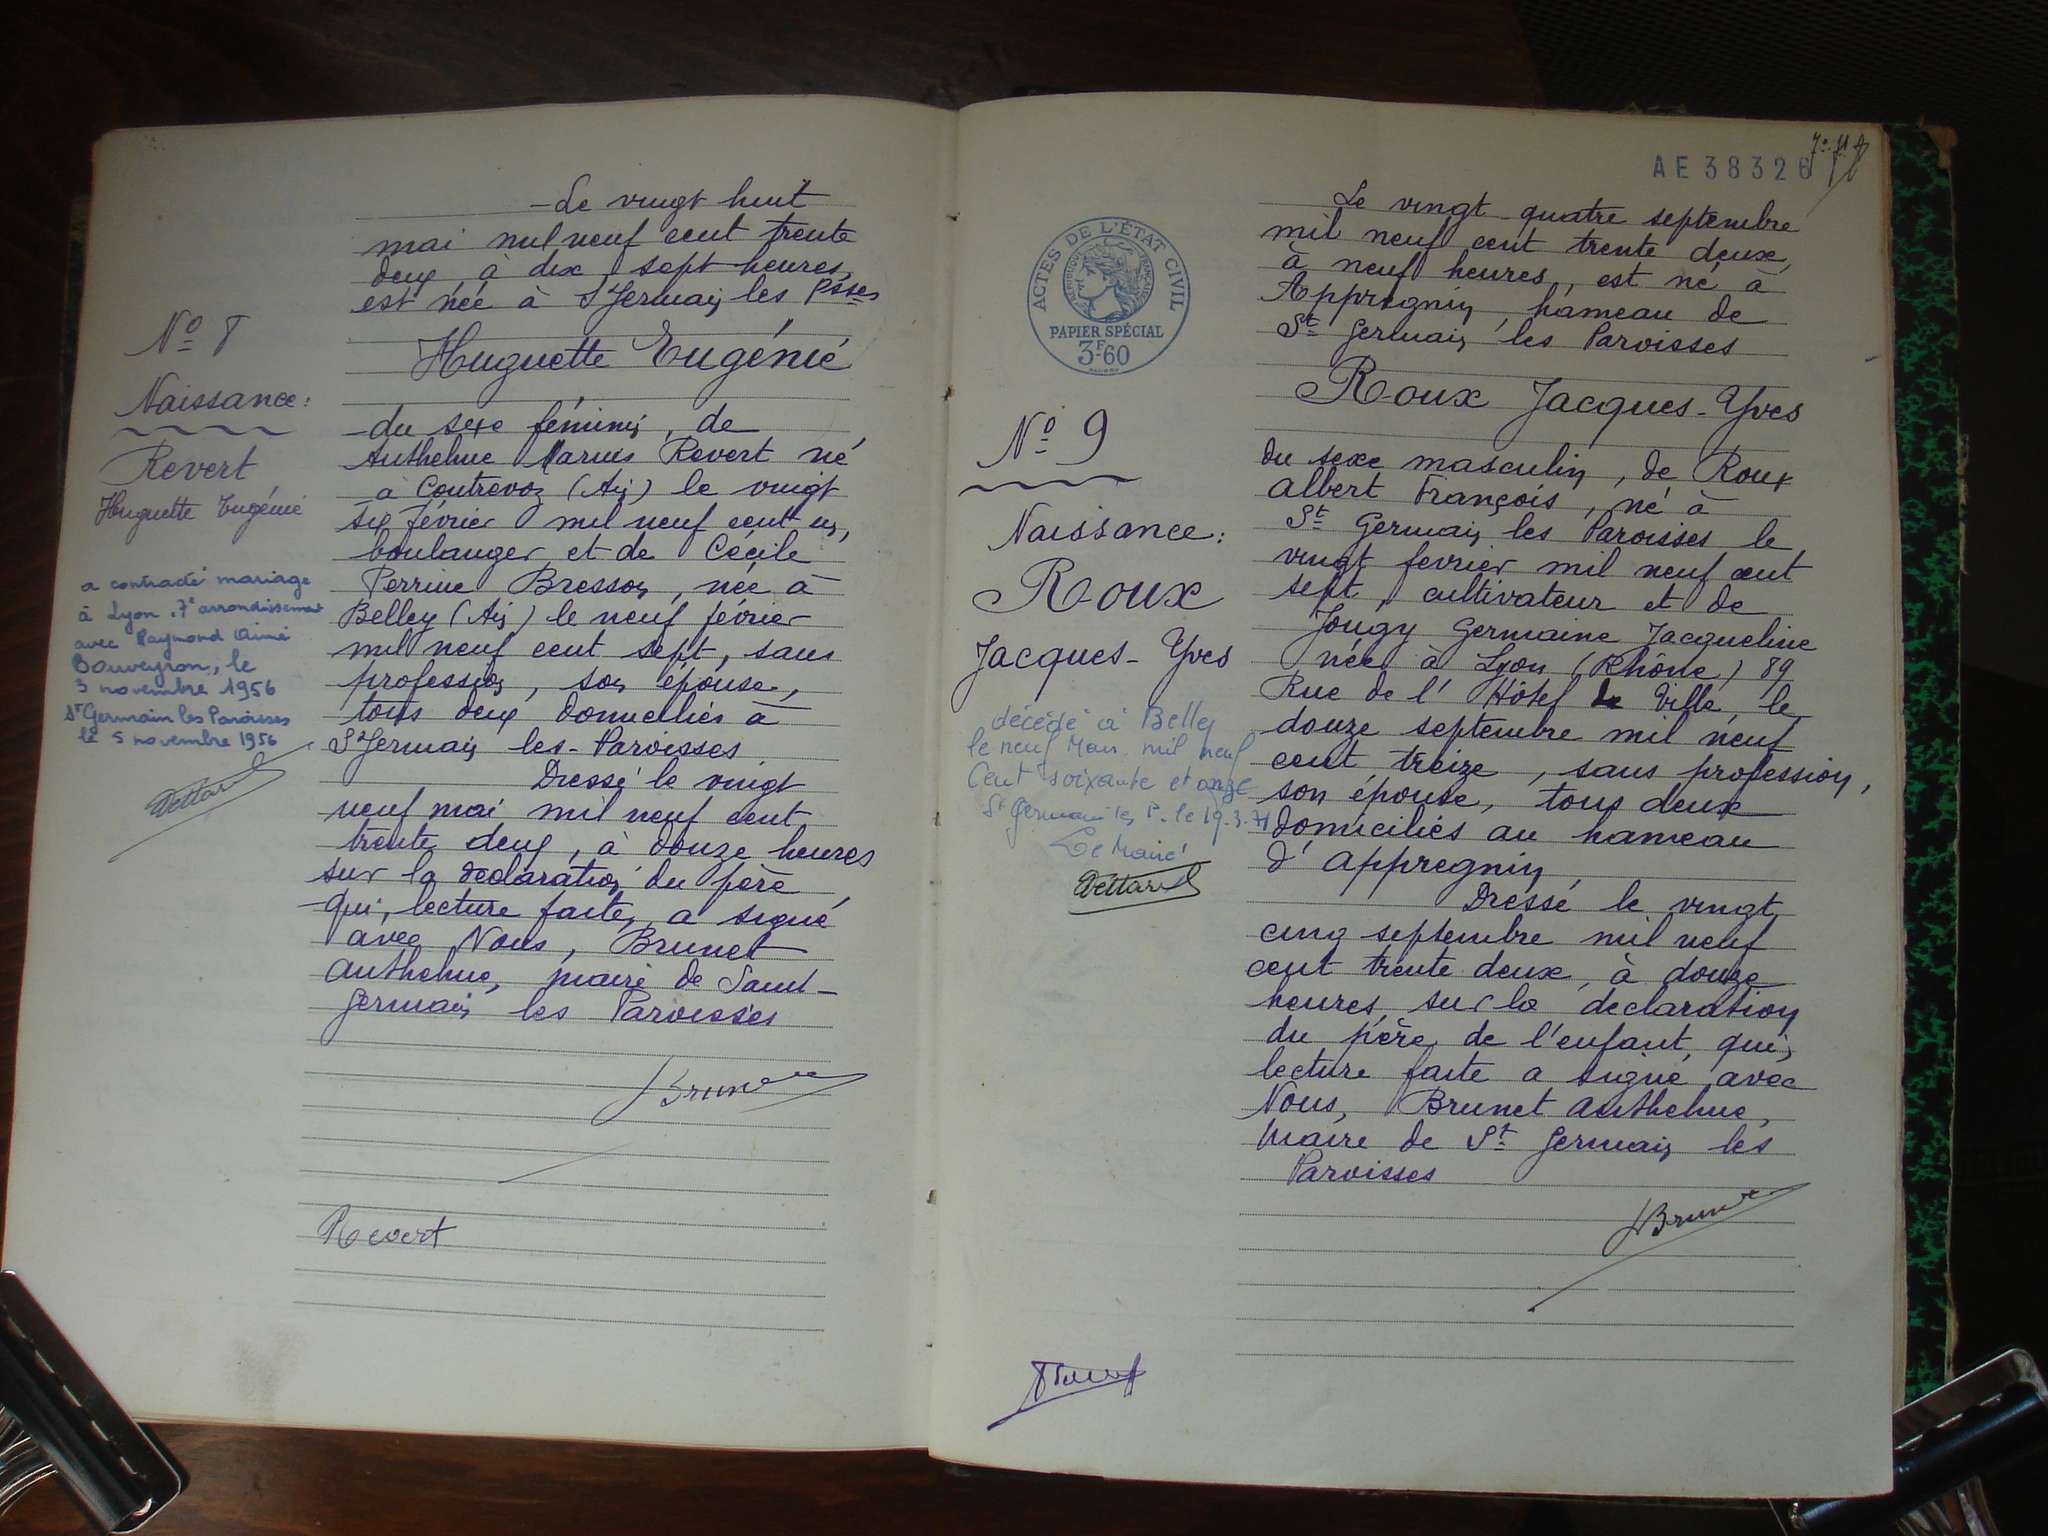 Le vingt huit
mai mil neuf cent trente
deux à dix sept heures,
est née à St Germain les Psses
Huguette Eugénie
du sexe féminin, de
Anthelme Marius Revert né
à Contrevoz (Ain) le vingt
six février mil neuf cent un,
boulanger et de Cécile
Perrine Bresson, née à
Belley (Ain) le neuf février
mil neuf cent sept, sans
profession, son épouse,
tous deux domiciliés à
St Germain les-Paroisses
Dressé le vingt
neuf mai mil neuf cent
trente deux, à douze heures
sur la déclaration du père
qui, lecture faite, a signé
avec Nous, Brunet
Anthelme, maire de Saint-
Germain les Paroisses
Brunet
Revert
No 8
Naissance:
Revert
Huguette Eugénie
a contracté mariage
à Lyon 7e arrondissement
avec Raymond Aimé
Bauveyron, le
3 novembre 1956
St Germain les Paroisses
le 5 novembre 1956
Dettard
AE 38326
ACTES DE L'ÉTAT CIVIL
RÉPUBLIQUE FRANÇAISE
PAPIER SPÉCIAL
3F60
No 9
Naissance:
Roux
Jacques-Yves
décédé à Belley
le neuf Mars mil neuf
Cent soixante et onze
St Germain les P. le 19.3.71
Le Maire
Dettard
Le vingt quatre septembre
mil neuf cent trente deux,
à neuf heures, est né à
Appregnin, hameau de
St Germain les Paroisses
Roux Jacques-Yves
du sexe masculin, de Roux
Albert François, né à
St Germain les Paroisses le
vingt fevrier mil neuf cent
sept, cultivateur et de
Jougy Germaine Jacqueline
née à Lyon (Rhône) 89
Rue de l'Hôtel de Ville, le
douze septembre mil neuf
cent treize, sans profession,
son épouse, tous deux
domiciliés au hameau
d'Appregnin
Dressé le vingt
cinq septembre mil neuf
cent trente deux, à douze
heures, sur la declaration
du père de l'enfant, qui,
lecture faite a signé avec
Nous, Brunet Anthelme,
Maire de St Germain les
Paroisses
Brunet